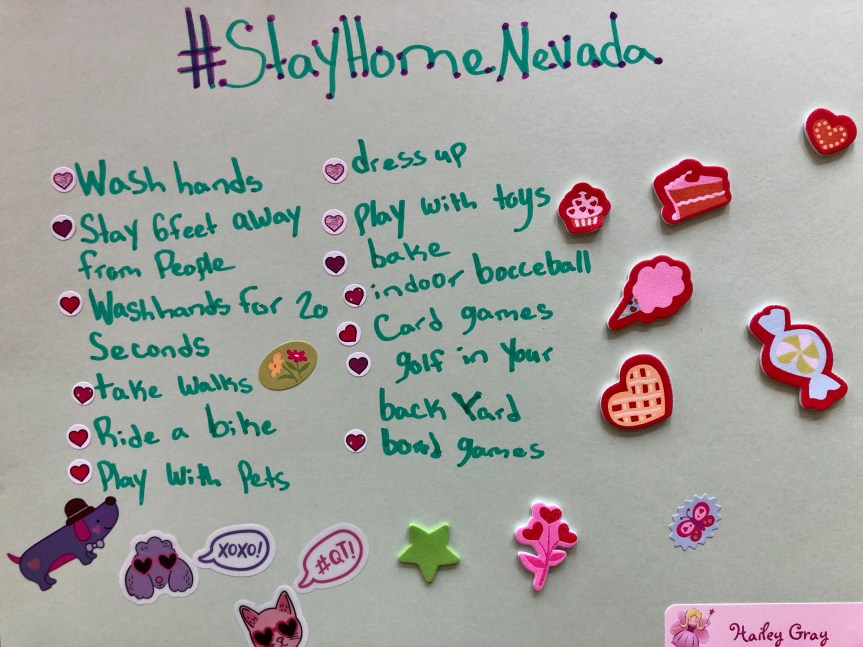 #StayHomeNevada
Wash hands
Stay 6feet away
from People
Wash hands for 20
Seconds
take walks
Ride a bike
Play with Pets
dress up
Play with toys
bake
indoor bocceball
Card games
golf in Your
back Yard
bord games
XOXO!
#QT!
Hailey Gray